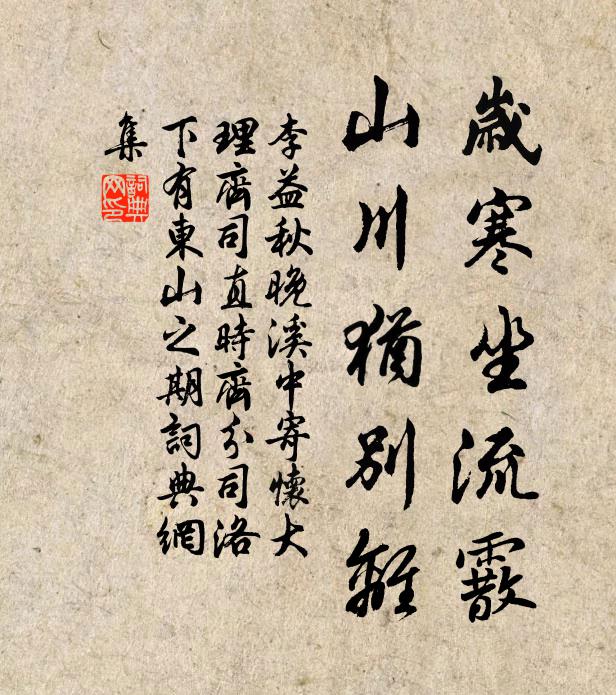 歲寒坐流霰
山川猶別離
李益秋晚溪中寄懷大
理齊司直時齊分司洛
下有東山之期詞典網
集
詞典
网印